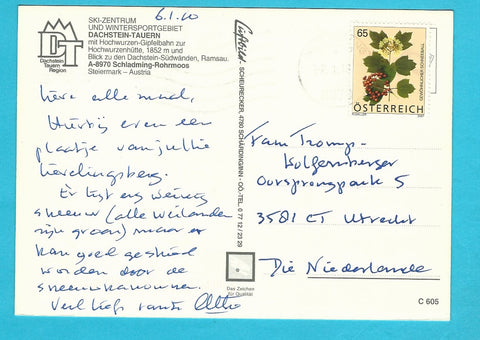 SKI-ZENTRUM
UND WINTERSPORTGEBIET
DACHSTEIN-TAUERN
mit Hochwurzen-Gipfelbahn zur
Hochwurzenhütte, 1852 m und
Blick zu den Dachstein-Südwänden, Ramsau.
A-8970 Schladming-Rohrmoos
Steiermark – Austria
DT
Dachstein
Tauern
Region
6.1.10
Lieve allemaal,
Hierbij even een
plaatje van jullie
lievelingsberg.
Er ligt erg weinig
sneeuw (alle weilanden
zijn groen) maar er
kan goed geskied
worden door de
sneeuwkanonnen.
Veel liefs vanuit
SCHEURECKER, 4780 SCHÄRDING/INN - OÖ-TEL. 0 77 12 / 23 29
Das Zeichen
für Qualität
65
GEWÖHNLICHER SCHNEEBALL
ÖSTERREICH
2007
Fam Tromp-
Holzernberger
Oorsprongpark 5
3581 ET Utrecht
Die Niederlande
C 605